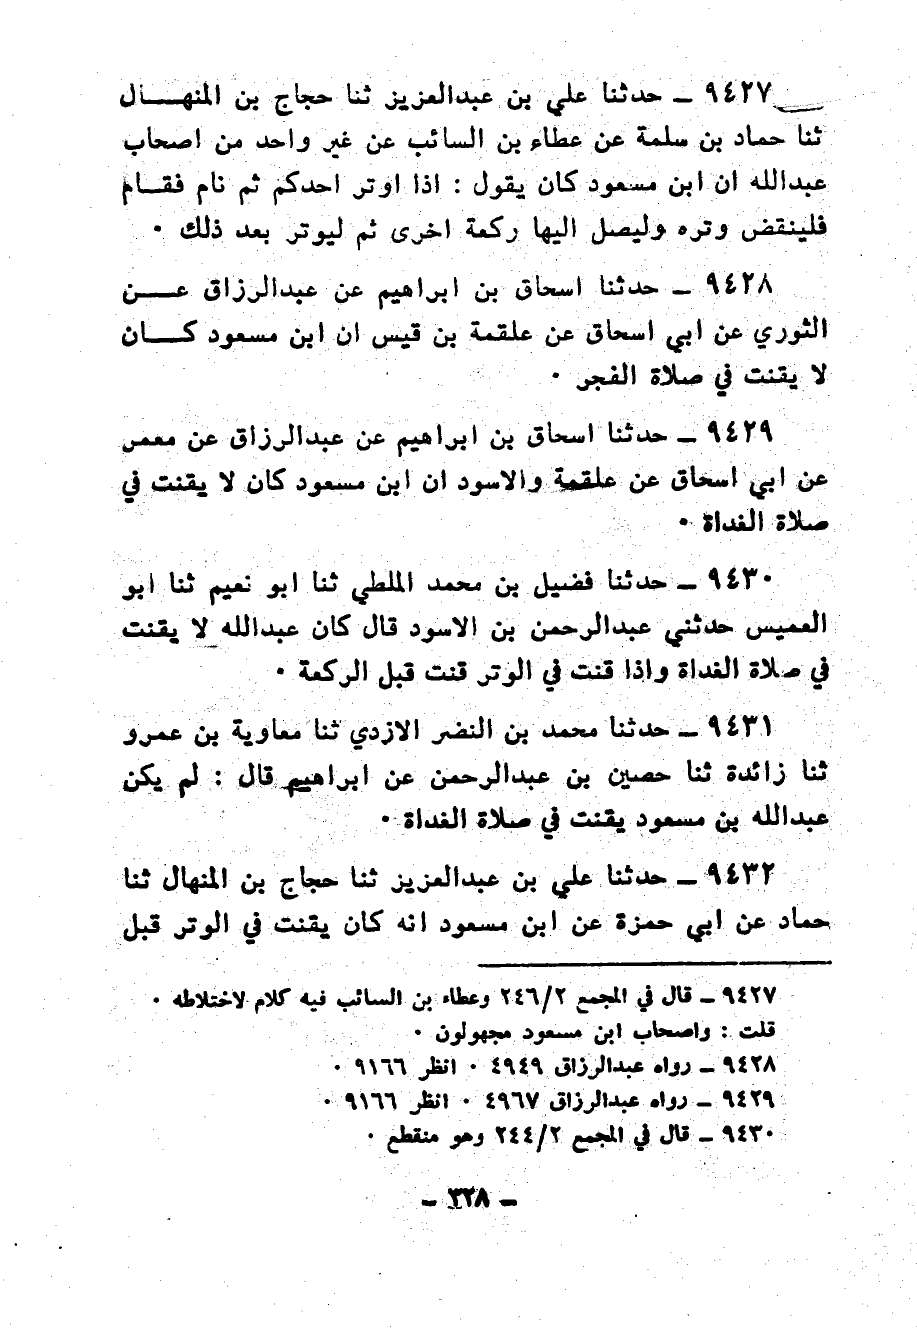 ٩٤٢٧ ــ حدثنا علي بن عبدالعزيز ثنا حجاج بن المنهـــال
ثنا حماد بن سلمة عن عطاء بن السائب عن غير واحد من اصحاب
عبدالله ان ابن مسعود كان يقول : اذا اوتر احدكم ثم نام فقــام
فلينقض وتره وليصل اليها ركعة اخرى ثم ليوتر بعد ذلك ٠
٩٤٢٨ ــ حدثنا اسحاق بن ابراهيم عن عبدالرزاق عـــن
الثوري عن ابي اسحاق عن علقمة بن قيس ان ابن مسعود كـــان
لا يقنت في صلاة الفجر ٠
٩٤٢٩ ــ حدثنا اسحاق بن ابراهيم عن عبدالرزاق عن معمر
عن ابي اسحاق عن علقمة والاسود ان ابن مسعود كان لا يقنت في
صلاة الغداة ٠
٩٤٣٠ ــ حدثنا فضيل بن محمد الملطي ثنا ابو نعيم ثنا ابو
العميس حدثني عبدالرحمن بن الاسود قال كان عبدالله لا يقنت
في صلاة الغداة واذا قنت في الوتر قنت قبل الركعة ٠
٩٤٣١ ــ حدثنا محمد بن النضر الازدي ثنا معاوية بن عمرو
ثنا زائدة ثنا حصين بن عبدالرحمن عن ابراهيم قال : لم يكن
عبدالله بن مسعود يقنت في صلاة الغداة ٠
٩٤٣٢ ــ حدثنا علي بن عبدالعزيز ثنا حجاج بن المنهال ثنا
حماد عن ابي حمزة عن ابن مسعود انه كان يقنت في الوتر قبل
٩٤٢٧ ــ قال في المجمع ٢٤٦/٢ وعطاء بن السائب فيه كلام لاختلاطه ٠
قلت : واصحاب ابن مسعود مجهولون ٠
٩٤٢٨ ــ رواه عبدالرزاق ٤٩٤٩ ٠ انظر ٩١٦٦ ٠
٩٤٢٩ ــ رواه عبدالرزاق ٤٩٦٧ ٠ انظر ٩١٦٦ ٠
٩٤٣٠ ــ قال في المجمع ٢٤٤/٢ وهو منقطع ٠
ــ ٣٢٨ ــ